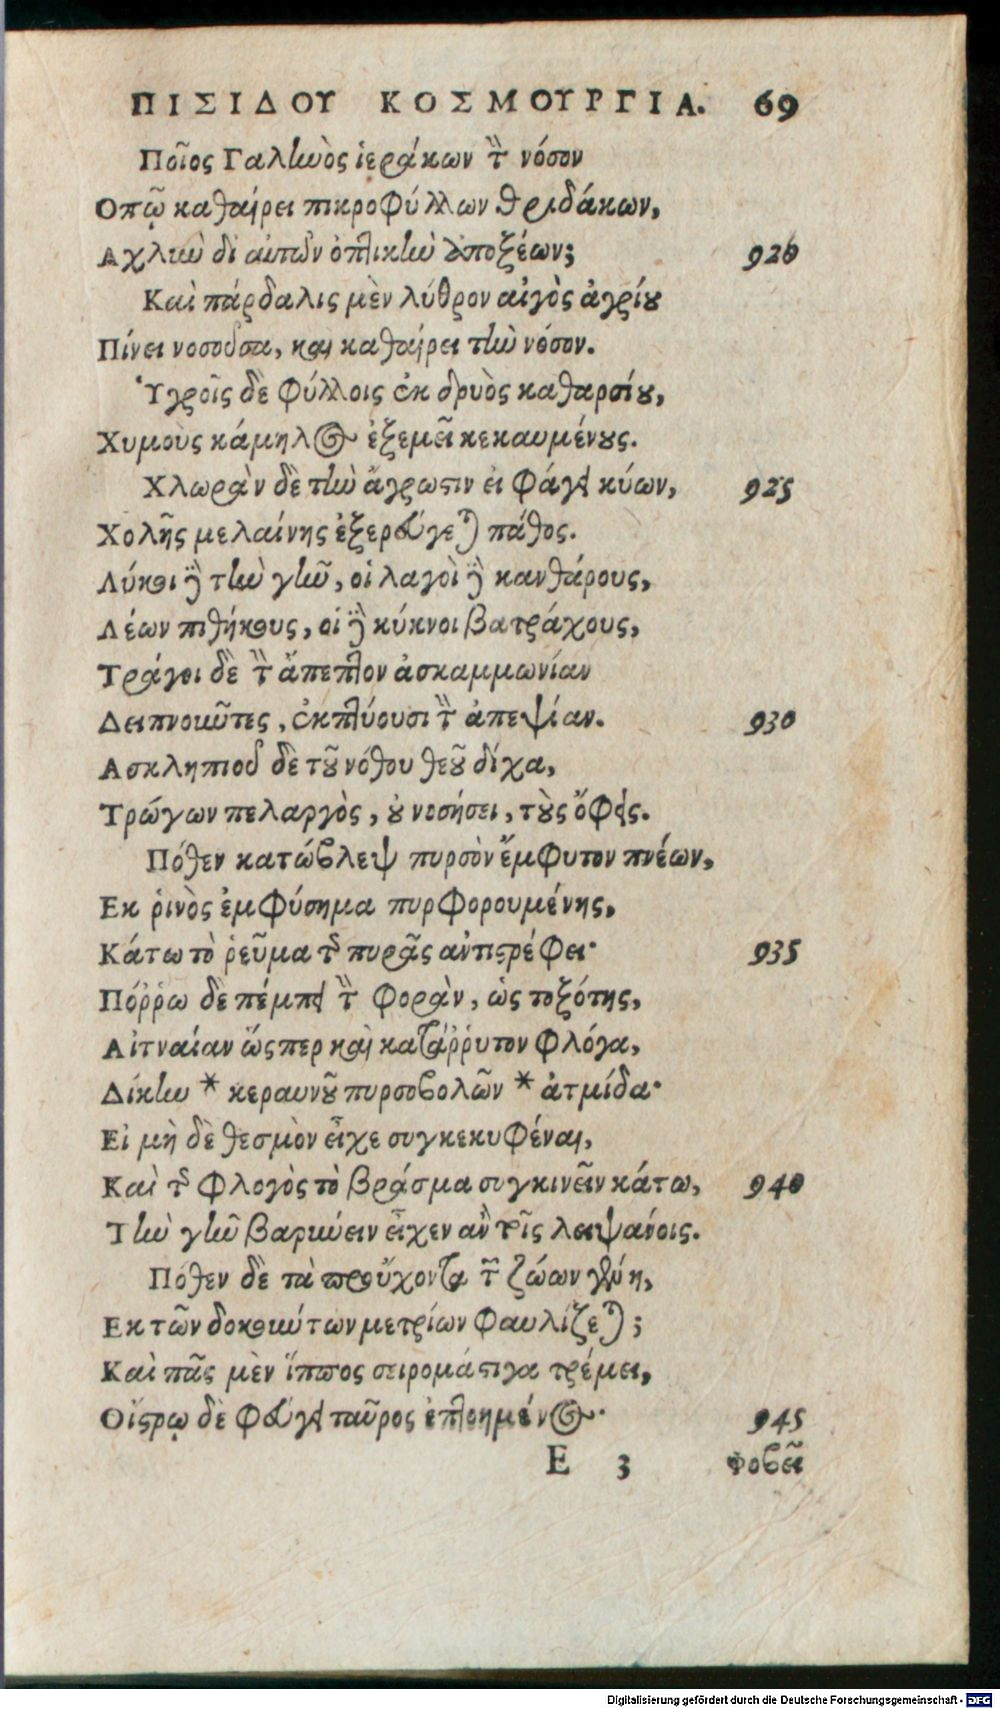 ΠΙΣΙΔΟΥ ΚΟΣΜΟΥΡΓΙΑ. 69
Ποῖος Γαληνὸς ἱεράκων τὴν νόσον
Οπῷ καθαίρει πικροφύλλων θριδάκων,
Αχλιὼ δι αὐτῶν ὀπλικὴν ἀποξέων; 920
Καὶ πάρδαλις μὲν λύθρον αἰγὸς ἀγρίου
Πίνει νοσοῦσα, καὶ καθαίρει τὴν νόσον.
Ὑγροῖς δὲ φύλλοις ἐκ δρυὸς καθαρσίου,
Χυμοὺς κάμηλος ἐξεμεῖ κεκαυμένους.
Χλωρὰν δὲ τὴν ἄγρωστιν εἰ φάγει κύων, 925
Χολῆς μελαίνης ἐξερεύγεται πάθος.
Λύκοι δὲ τὴν γῆν, οἱ λαγοὶ δὲ κανθάρους,
Λέων πιθήκους, οἱ δὲ κύκνοι βατράχους,
Τράγοι δὲ τὴν ἄπεπλον ἀσκαμμωνίαν
Δειπνοῦντες, ἐκπλύουσι τὴν ἀπεψίαν. 930
Ασκληπιοῦ δὲ τοῦ νόθου θεοῦ δίχα,
Τρώγων πελαργὸς, οὐ νοσήσει, τοὺς ὄφεις.
Πόθεν κατώβλεψ πυρσὸν ἔμφυτον πνέων,
Εκ ῥινὸς ἐμφύσημα πυρφορουμένης,
Κάτω τὸ ῥεῦμα τῆς πυρᾶς αντιστρέφει· 935
Πόῤῥω δὲ πέμπει τὴν φορὰν, ὡς τοξότης,
Αἰτναίαν ὥσπερ καὶ κατάῤῥυτον φλόγα,
Δίκην * κεραυνοῦ πυρσοβολῶν * ἀτμίδα·
Εἰ μὴ δὲ θεσμὸν εἶχε συγκεκυφέναι,
Καὶ τῆς φλογὸς τὸ βράσμα συγκινεῖν κάτω, 940
Τὴν γῆν βαρυύειν εἶχεν ἂν τοῖς λειψάνοις.
Πόθεν δὲ τὰ προὔχοντα τῶν ζώων γένη,
Εκ τῶν δοκούντων μετρίων φαυλίζεται;
Καὶ πᾶς μὲν ἵππος σειρομάστιγα τρέμει,
Οἴστρῳ δὲ φεύγει ταῦρος ἐπλοημένος· 945
Ε 3 φοβεῖ
Digitalisierung gefördert durch die Deutsche Forschungsgemeinschaft - DFG